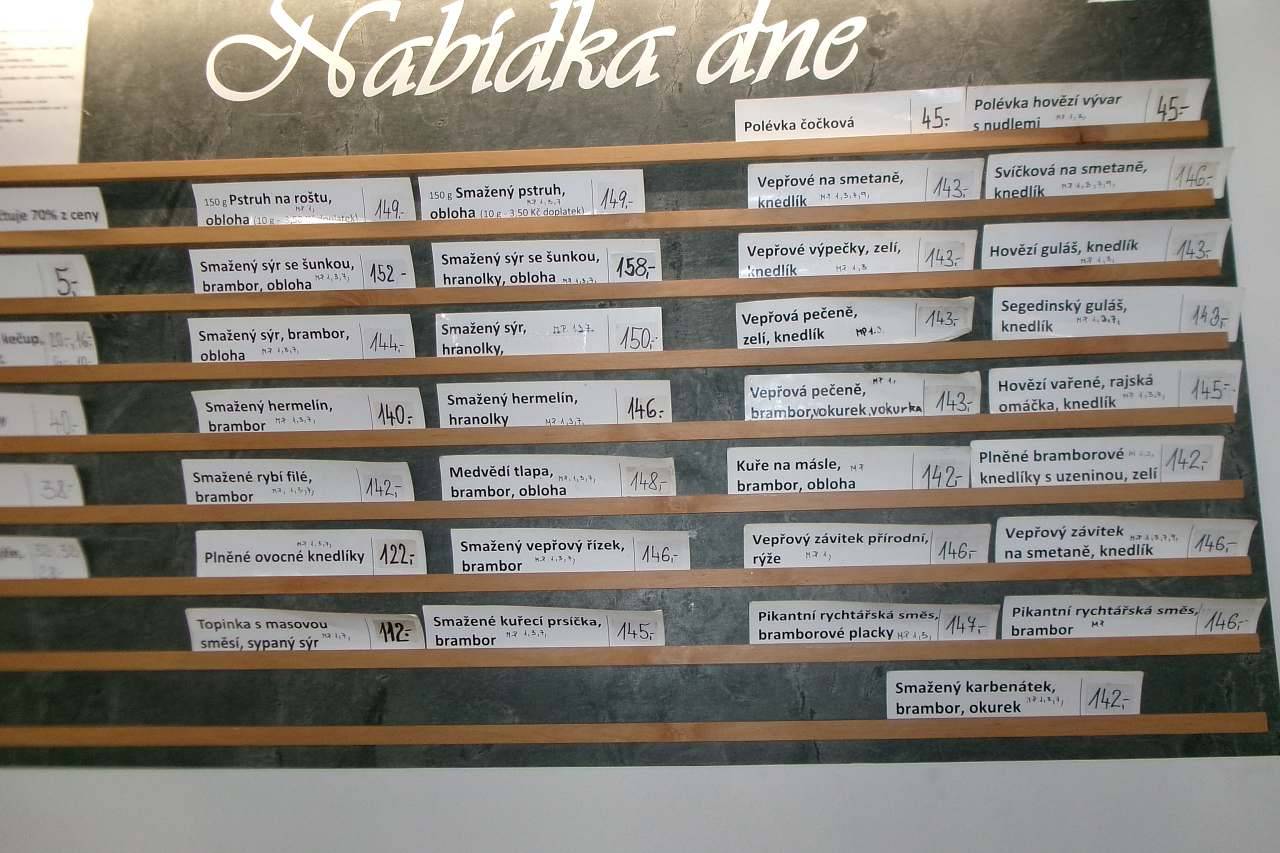 Nabídka dne
Polévka čočková 45.-
Polévka hovězí vývar
s nudlemi 45.-
čtuje 70% z ceny
150 g Pstruh na roštu,
obloha (10 g - 3,50 Kč doplatek) 149.-
150 g Smažený pstruh,
obloha (10 g - 3,50 Kč doplatek) 149.-
Vepřové na smetaně,
knedlík 143.-
Svíčková na smetaně,
knedlík 146.-
5,-
Smažený sýr se šunkou,
brambor, obloha 152-
Smažený sýr se šunkou,
hranolky, obloha 158,-
Vepřové výpečky, zelí,
knedlík 143,-
Hovězí guláš, knedlík 143,-
Kečup,
Smažený sýr, brambor,
obloha 144,-
Smažený sýr,
hranolky, 150,-
Vepřová pečeně,
zelí, knedlík 143,-
Segedinský guláš,
knedlík 143,-
40,-
Smažený hermelín,
brambor 140.-
Smažený hermelín,
hranolky 146.-
Vepřová pečeně,
brambor, vokurek, vokurka 143,-
Hovězí vařené, rajská
omáčka, knedlík 145.-
38.-
Smažené rybí filé,
brambor 142,-
Medvědí tlapa,
brambor, obloha 148,-
Kuře na másle,
brambor, obloha 142.-
Plněné bramborové
knedlíky s uzeninou, zelí 142,-
Plněné ovocné knedlíky 122,-
Smažený vepřový řízek,
brambor 146,-
Vepřový závitek přírodní,
rýže 146,-
Vepřový závitek
na smetaně, knedlík 146,-
Topinka s masovou
směsí, sypaný sýr 112.-
Smažené kuřecí prsíčka,
brambor 145,-
Pikantní rychtářská směs,
bramborové placky 147.-
Pikantní rychtářská směs,
brambor 146,-
Smažený karbenátek,
brambor, okurek 142,-